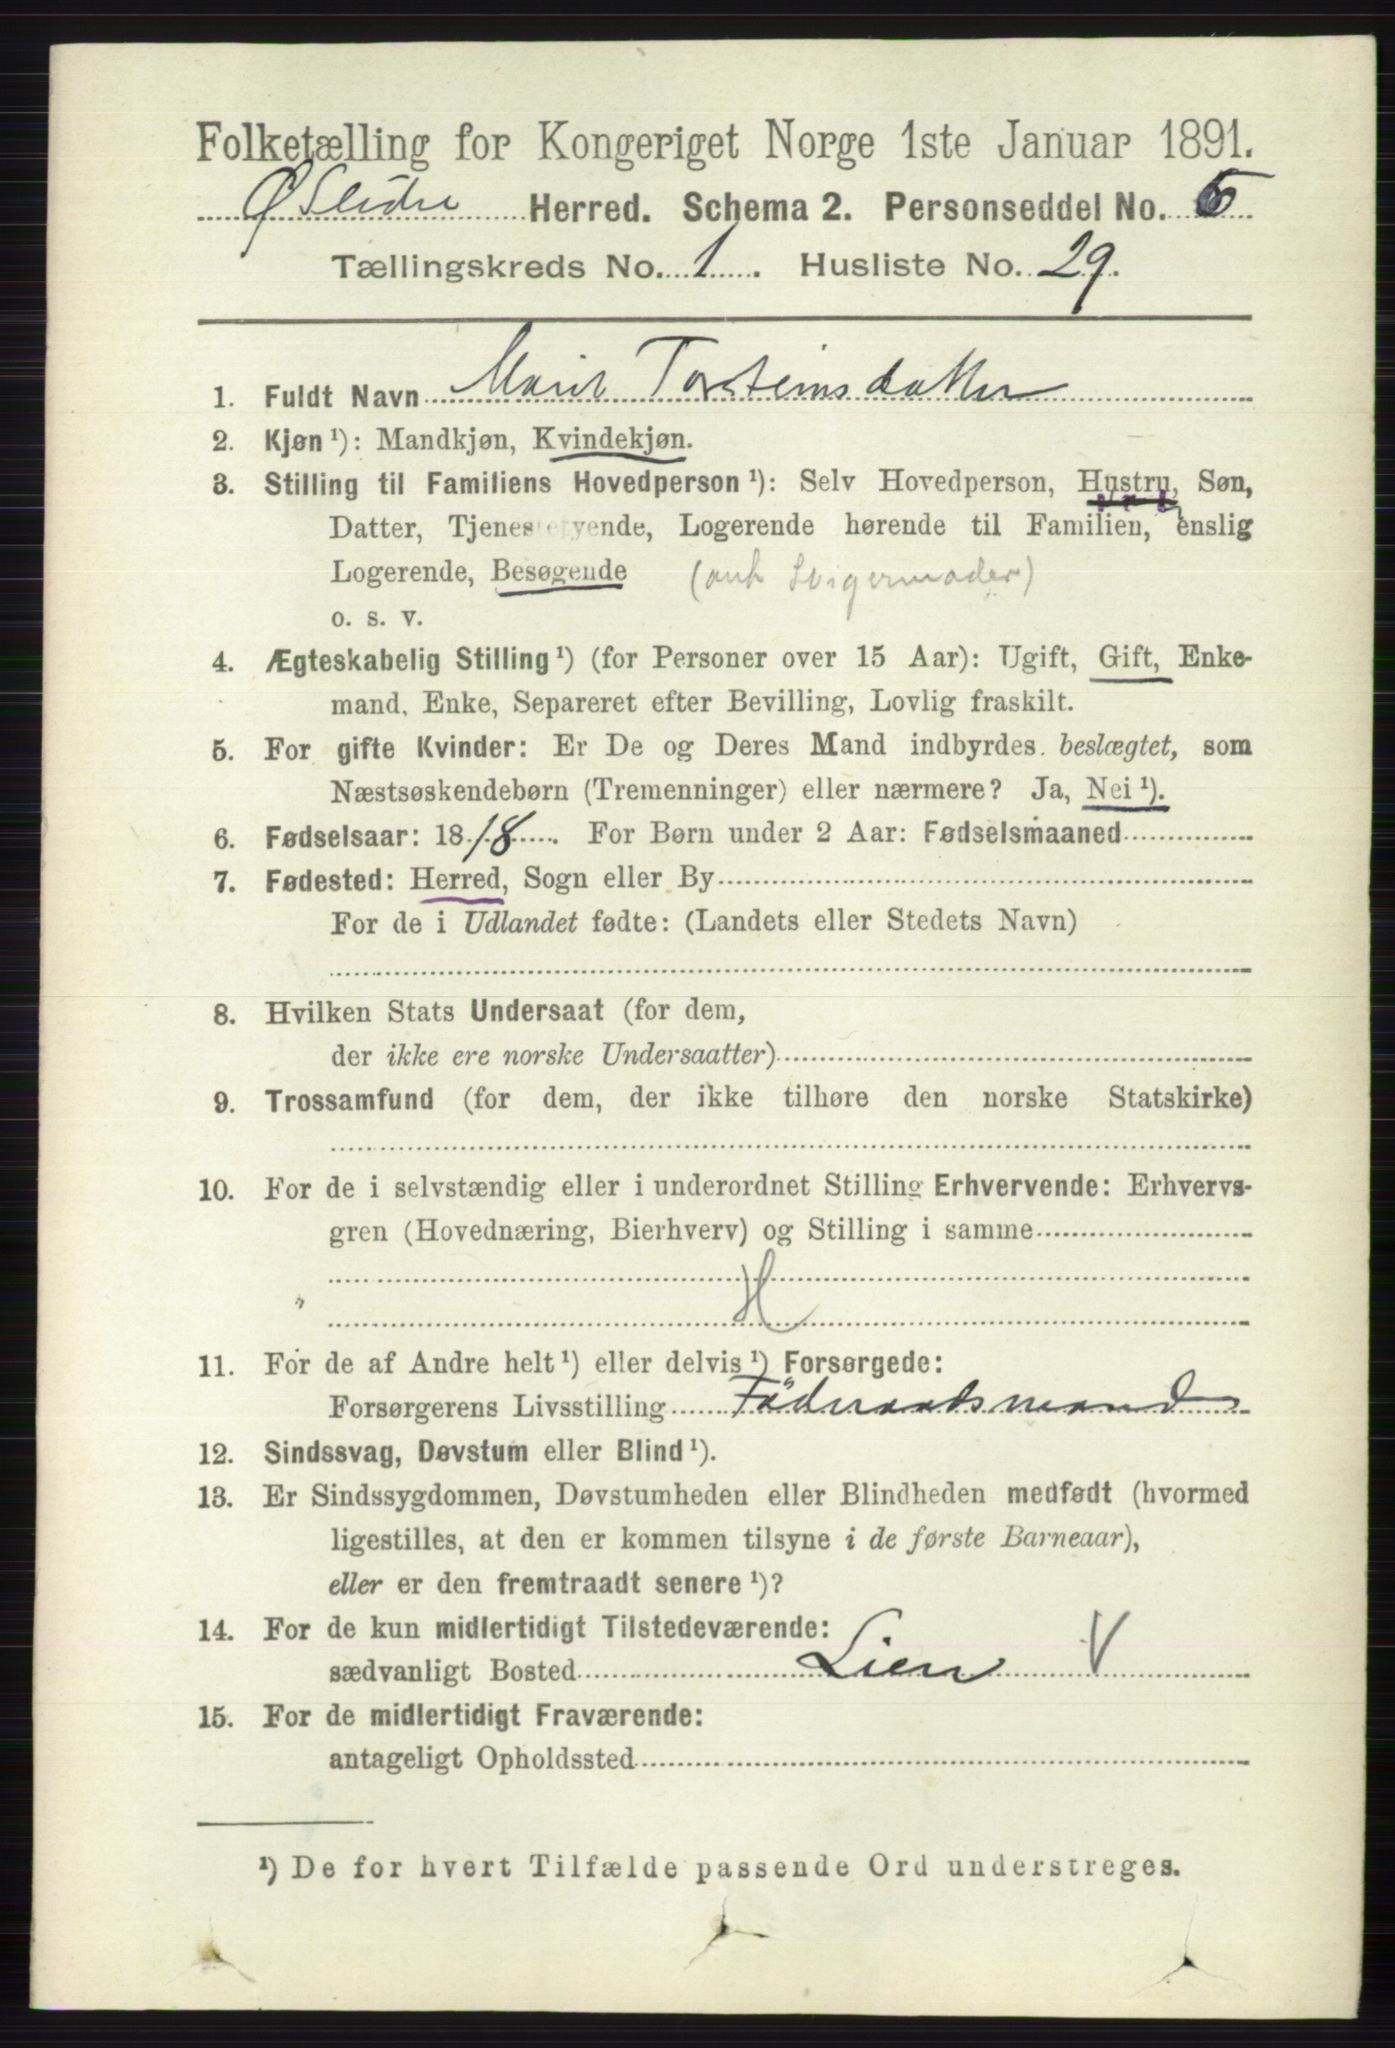 Folketælling for Kongeriget Norge 1ste Januar 1891.
Ø Slidre Herred. Schema 2. Personseddel No. 6
Tællingskreds No. 1. Husliste No. 29.
1. Fuldt Navn Marit Torsteinsdatter
2. Kjøn ¹): Mandkjøn, Kvindekjøn.
3. Stilling til Familiens Hovedperson ¹): Selv Hovedperson, Hustru, Søn,
Datter, Tjenestetyende, Logerende hørende til Familien, enslig
Logerende, Besøgende (ant Svigermoder)
o. s. v.
4. Ægteskabelig Stilling ¹) (for Personer over 15 Aar): Ugift, Gift, Enke-
mand, Enke, Separeret efter Bevilling, Lovlig fraskilt.
5. For gifte Kvinder: Er De og Deres Mand indbyrdes beslægtet, som
Næstsøskendebørn (Tremenninger) eller nærmere? Ja, Nei ¹).
6. Fødselsaar: 1818. For Børn under 2 Aar: Fødselsmaaned
7. Fødested: Herred, Sogn eller By
For de i Udlandet fødte: (Landets eller Stedets Navn)
8. Hvilken Stats Undersaat (for dem,
der ikke ere norske Undersaatter)
9. Trossamfund (for dem, der ikke tilhøre den norske Statskirke)
10. For de i selvstændig eller i underordnet Stilling Erhvervende: Erhvervs-
gren (Hovednæring, Bierhverv) og Stilling i samme
H
11. For de af Andre helt ¹) eller delvis ¹) Forsørgede:
Forsørgerens Livsstilling Föderaadsmand
12. Sindssvag, Døvstum eller Blind ¹).
13. Er Sindssygdommen, Døvstumheden eller Blindheden medfødt (hvormed
ligestilles, at den er kommen tilsyne i de første Barneaar),
eller er den fremtraadt senere ¹)?
14. For de kun midlertidigt Tilstedeværende:
sædvanligt Bosted Lien V
15. For de midlertidigt Fraværende:
antageligt Opholdssted
¹) De for hvert Tilfælde passende Ord understreges.